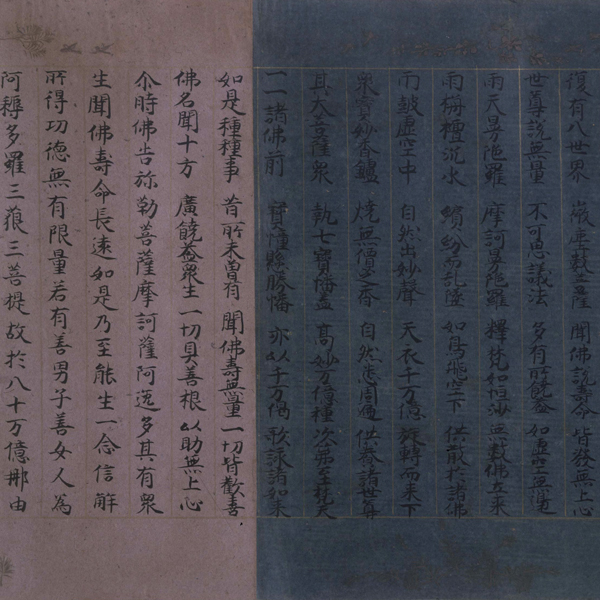 復有八世界　微塵數菩薩　聞佛說壽命　皆發無上心
世尊說無量　不可思議法　多有所饒益　如虛空無邊
雨天曼陀羅　摩訶曼陀羅　釋梵如恒沙　無數佛土來
雨栴檀沉水　繽紛而亂墜　如鳥飛空下　供散於諸佛
而皷虛空中　自然出妙聲　天衣千万億　旋轉而來下
眾寶妙香爐　燒無價之香　自然悉周遍　供養諸世尊
其大菩薩眾　執七寶幡蓋　高妙万億種　次第至梵天
一一諸佛前　寶幢縣勝幡　亦以千万偈　歌詠諸如來
如是種種事　昔所未曾有　聞佛壽無量　一切皆歡喜
佛名聞十方　廣饒益眾生　一切具善根　以助無上心
尒時佛告弥勒菩薩摩訶薩阿逸多其有眾
生聞佛壽命長遠如是乃至能生一念信解
所得功德無有限量若有善男子善女人為
阿耨多羅三藐三菩提故於八十万億那由